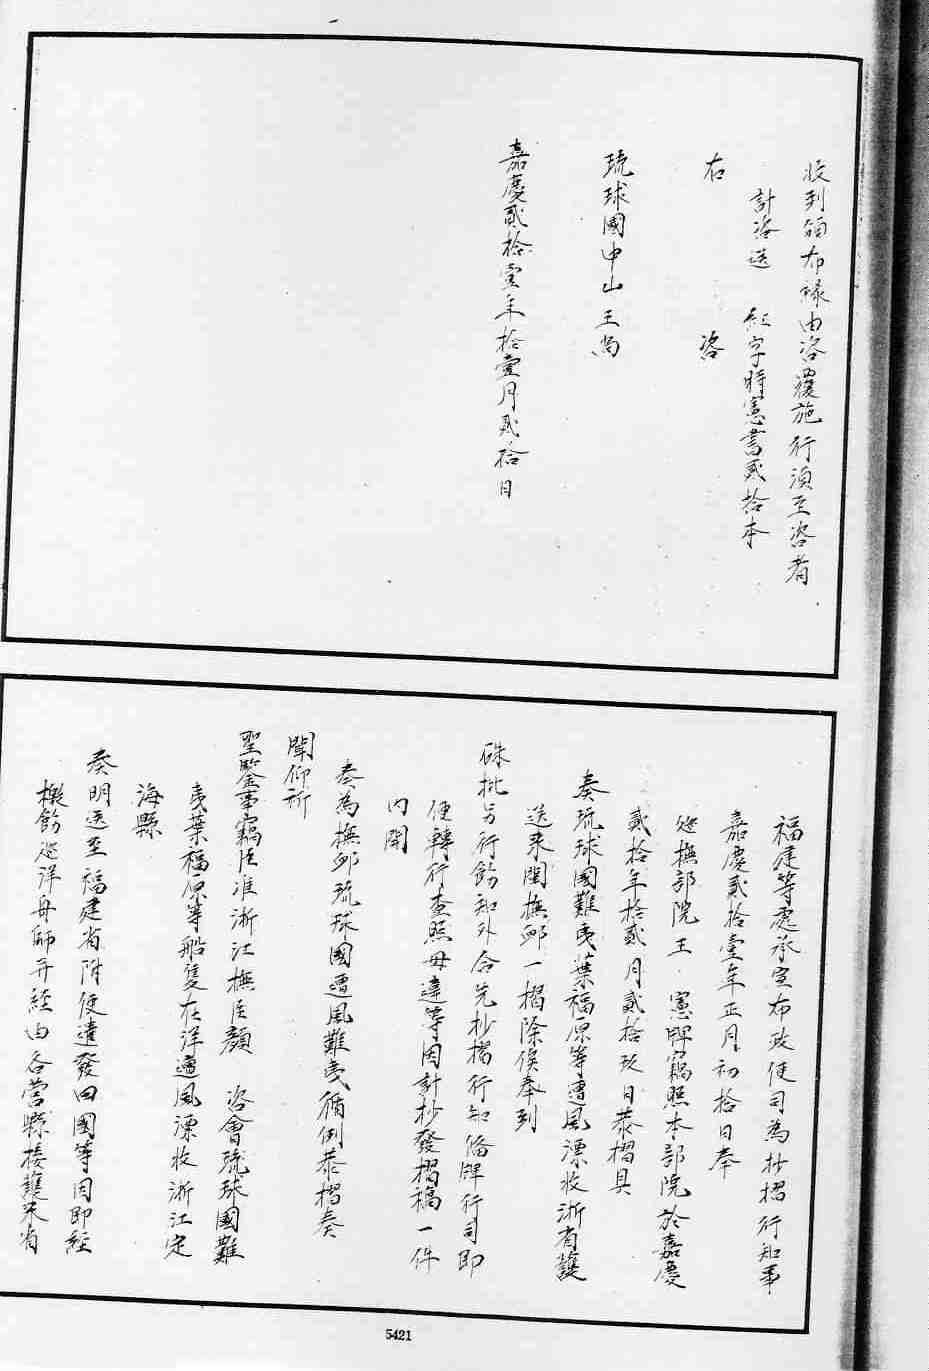 收到頒布緣由咨覆施行須至咨者
計咨送 紅字時憲書貳拾本
右 咨
琉球國中山王尚
嘉慶貳拾壹年拾壹月貳拾日
福建等處承宣布政使司為抄摺行知事
嘉慶貳拾壹年正月初拾日奉
巡撫部院王 憲牌竊照本部院於嘉慶
貳拾年拾貳月貳拾玖日恭摺具
奏琉球國難夷葉福原等遭風漂收浙省護
送來閩撫卹一摺除俟奉到
硃批另行飭知外合先抄摺行知備牌行司即
便轉行查照毋違等因計抄發摺稿一件
內開
奏為撫卹琉球國遭風難夷循例恭摺奏
聞仰祈
聖鑒事竊臣准浙江撫臣顏 咨會琉球國難
夷葉福原等船隻在洋遭風漂收浙江定
海縣
奏明送至福建省附便遣發回國等因即經
檄飭巡洋舟師并經由各營縣接護來省
5421